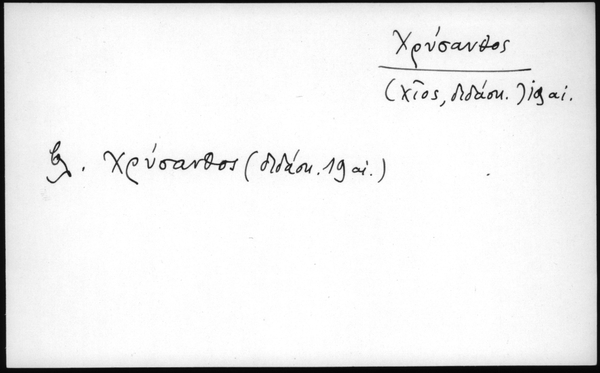 Χρύσανθος
(χῖος, διδάσκ.) 19 αἰ.
βλ. Χρύσανθος (διδάσκ. 19 αἰ.)